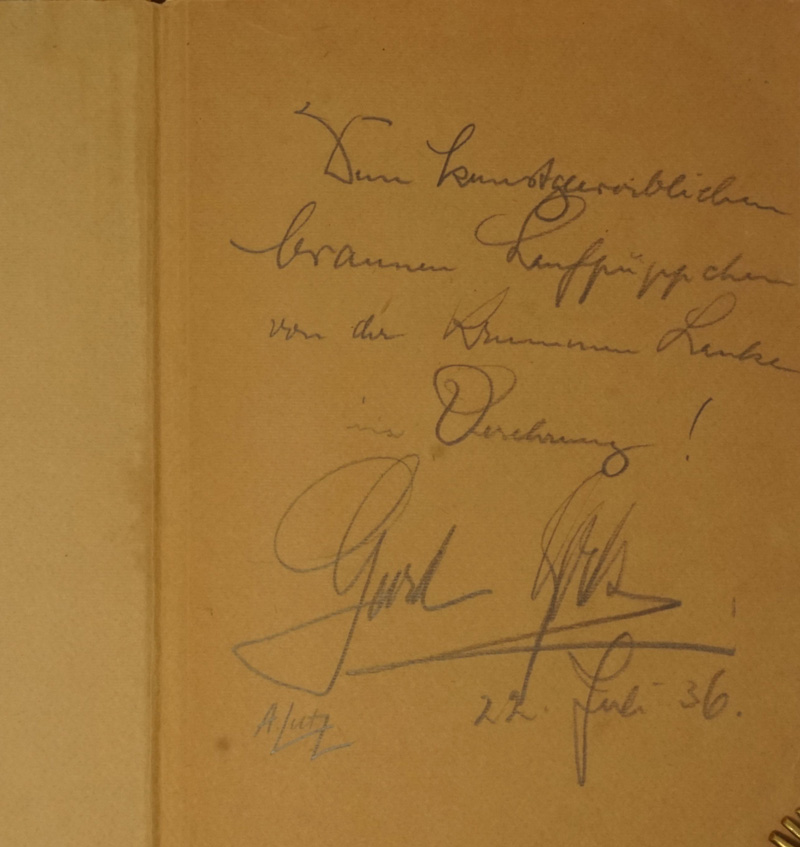 Dem kunstgewerblichen
braunen Laufpüppchen
von der Krummen Lanke
in Verehrung!
Gerd
22. Juli 36.
A. Lutz